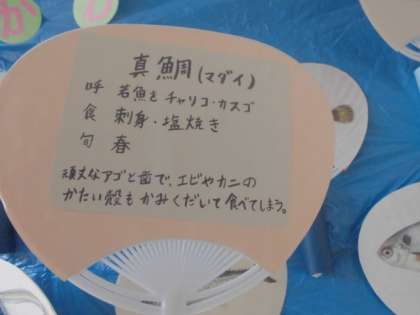 真鯛(マダイ)
呼 若魚をチャリコ・カスゴ
食 刺身・塩焼き
旬 春
頑丈なアゴと歯で、エビやカニの
かたい殻もかみくだいて食べてしまう。